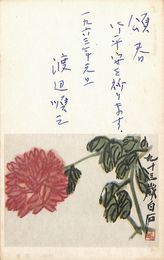 頌春
に平安を祈ります。
一九六三年元旦
渡辺順三
九十三歳白石